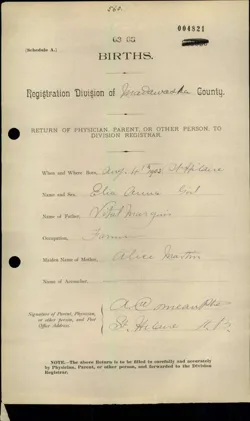 560.
004821
63 05
(Schedule A.)
BIRTHS.
Registration Division of Madawaska County.
RETURN OF PHYSICIAN, PARENT, OR OTHER PERSON, TO
DIVISION REGISTRAR.
When and Where Born, Aug. St Hilaire
Name and Sex, Elie Anna Girl
Name of Father, Vital
Occupation, Farmer
Maiden Name of Mother, Alice Martin
Name of Accoucher,
Signature of Parent, Physician,
or other person, and Post
Office Address.
St. Hilaire N.B.
NOTE.—The above Return is to be filled in carefully and accurately
by Physician, Parent, or other person, and forwarded to the Division
Registrar.